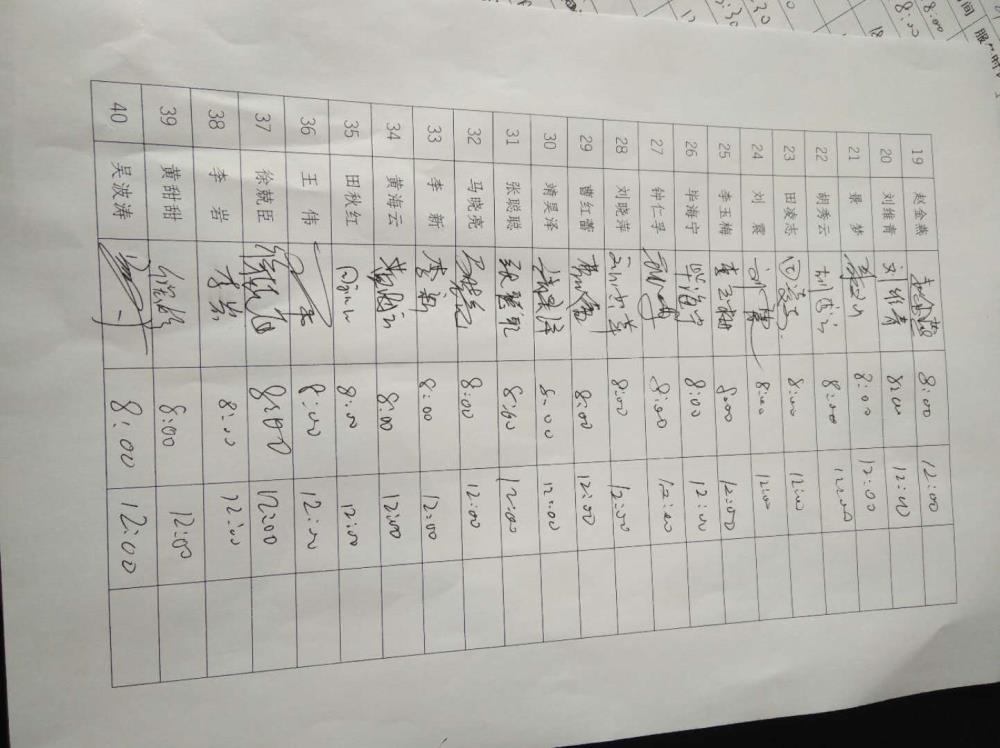 19 赵金燕 赵金燕 8:00 12:00
20 刘维青 刘维青 8:00 12:00
21 景梦 8:00 12:00
22 胡秀云 胡秀云 8:00 12:00
23 田凌志 田凌志 8:00 12:00
24 刘震 刘震 8:00 12:00
25 李玉梅 李玉梅 8:00 12:00
26 毕海宁 毕海宁 8:00 12:00
27 钟仁孚 8:00 12:00
28 刘晓萍 刘晓萍 8:00 12:00
29 曹红蕾 8:00 12:00
30 靖昊泽 靖昊泽 8:00 12:00
31 张聪聪 8:00 12:00
32 马晓亮 马晓亮 8:00 12:00
33 李新 李新 8:00 12:00
34 黄海云 黄海云 8:00 12:00
35 田秋红 8:00 12:00
36 王伟 8:00 12:00
37 徐兢臣 8:00 12:00
38 李岩 李岩 8:00 12:00
39 黄甜甜 8:00 12:00
40 吴波涛 8:00 12:00